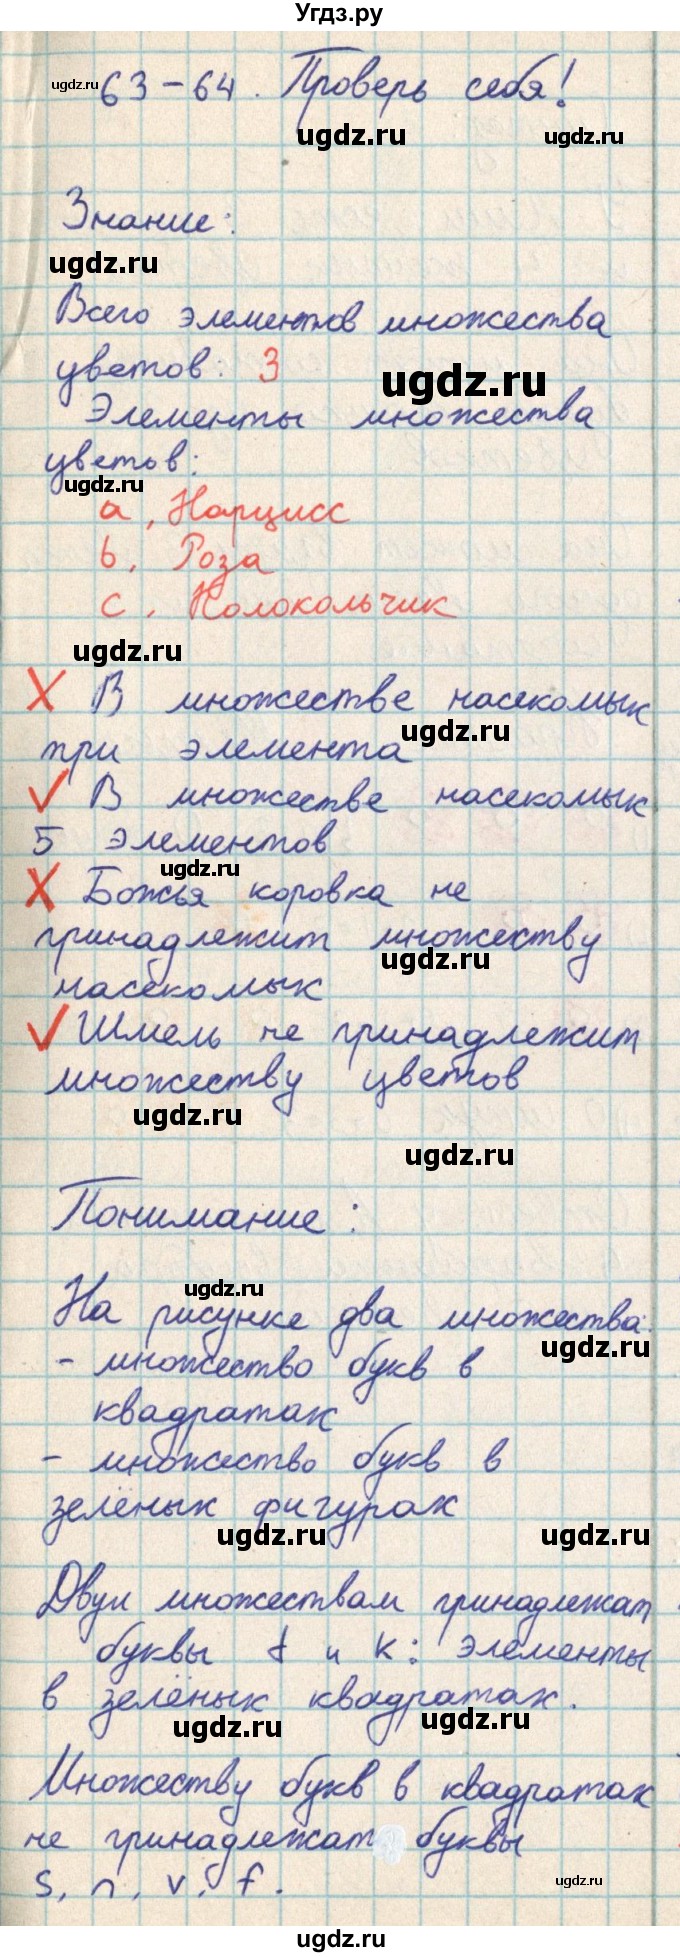 Угдз.ру
ugdz.ru 63-64. Проверь себя!
ugdz.ru ugdz.ru
Знание:
ugdz.ru
Всего элементов множества
цветов: 3
ugdz.ru
Элементы множества
цветов:
ugdz.ru
a, Нарцисс
b, Роза
c, Колокольчик
ugdz.ru
X В множестве насекомых
ugdz.ru
три элемента
✓ В множестве насекомых
5 элементов
ugdz.ru
X Божья коровка не
принадлежит множеству
ugdz.ru
насекомых
✓ Шмель не принадлежит
множеству цветов
ugdz.ru
ugdz.ru
Понимание:
ugdz.ru
На рисунке два множества:
ugdz.ru
- множество букв в
квадратах
- множество букв в
зелёных фигурах
ugdz.ru ugdz.ru
Двум множествам принадлежат
буквы t и k: элементы
в зелёных квадратах.
ugdz.ru ugdz.ru
Множеству букв в квадратах
не принадлежат буквы
s, n, v, f.
ugdz.ru
ugdz.ru